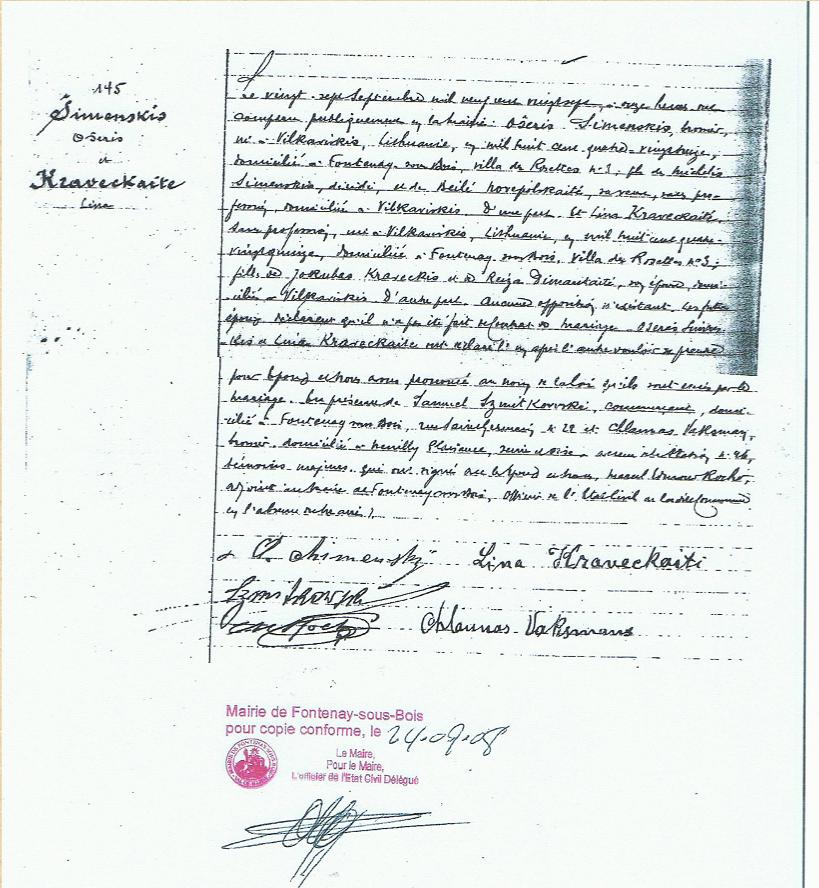 145
Šimenskis
Ošeris
et
Kraveckaite
Lina
Le vingt-sept Septembre mil neuf cent vingt sept, à onze heures ont
comparu publiquement en la mairie: Ošeris Simenskis,
né à Vilkaviskis, Lithuanie, en mil huit cent quatre-vingt
domicilié à Fontenay-sous-Bois, villa des Rosettes n°3, fils de Michelis
Simenskis, décédé, et de Beilé sa veuve, sans pro-
fession, domiciliée à Vilkaviskis, d'une part. Et Lina Kraveckaité,
sans profession, née à Vilkaviskis, Lithuanie, en mil huit cent quatre-
vingt quinze, domiciliée à Fontenay-sous-Bois, villa des Rosettes n°3,
fille de Jokubas Kraveckis et de Reiza son épouse, domi-
ciliés à Vilkaviskis d'autre part. Aucune opposition n'existant. Les futurs
époux déclarent qu'il n'a pas été fait de contrat de mariage. Oseris Simens-
kis et Lina Kraveckaite ont déclaré l'un après l'autre vouloir se prendre
pour époux et nous avons prononcé au nom de la loi qu'ils sont unis par le
mariage. En présence de Samuel commerçant, domi-
cilié à Fontenay-sous-Bois, rue n° 22 et Chlaunas Vaksman,
domicilié à Neuilly Plaisance, Seine et Oise, avenue de la Station n° 96,
témoins majeurs, qui ont signé avec les époux et nous, Marcel
adjoint au maire de Fontenay-sous-Bois, Officier de l'Etat Civil de ladite Commune
en l'absence du maire.
Lina Kraveckaiti
Chlaunas Vaksmans
Mairie de Fontenay-sous-Bois
pour copie conforme, le 24-09-08
Le Maire,
Pour le Maire,
L'officier de l'Etat Civil Délégué